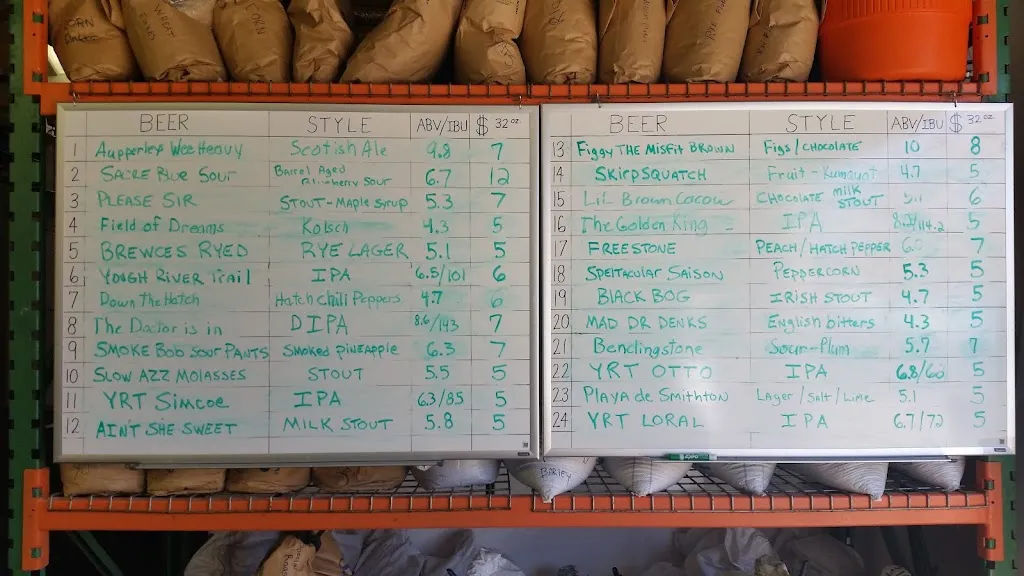 BEER STYLE ABV/IBU $ 32 oz.
1 Aupperley Wee Heavy Scotish Ale 9.8 7
2 SACRE Blue Sour Barrel Aged Blueberry Sour 6.7 12
3 PLEASE SIR STOUT-Maple Syrup 5.3 7
4 Field of Dreams Kolsch 4.3 5
5 BREWCES RYED RYE LAGER 5.1 5
6 YOUGH RIVER Trail IPA 6.5/101 6
7 Down The Hatch Hatch Chili Peppers 4.7 6
8 The Doctor is in DIPA 8.6/143 7
9 SMOKE Bob Sour PANTS Smoked Pineapple 6.3 7
10 SLOW AZZ MOLASSES STOUT 5.5 5
11 YRT Simcoe IPA 6.3/85 5
12 AIN'T SHE SWEET MILK STOUT 5.8 5
BEER STYLE ABV/IBU $ 32 oz.
13 Figgy THE MISFIT BROWN Figs/CHOCOLATE 10 8
14 SKIRPSQUATCH Fruit - Kumquat 4.7 5
15 LiL Brown Cacow CHOCOLATE milk STOUT 6
16 The Golden King IPA 5
17 FREESTONE PEACH/HATCH PEPPER 7
18 Spectacular SAISON PEPPERCORN 5.3 5
19 BLACK BOG IRISH STOUT 4.7 5
20 MAD DR DENKS English bitters 4.3 5
21 Bendingstone Sour-Plum 5.7 7
22 YRT OTTO IPA 6.8/60 5
23 Playa de Smithton Lager/Salt/Lime 5.1 5
24 YRT LORAL IPA 6.7/72 5
BARLEY